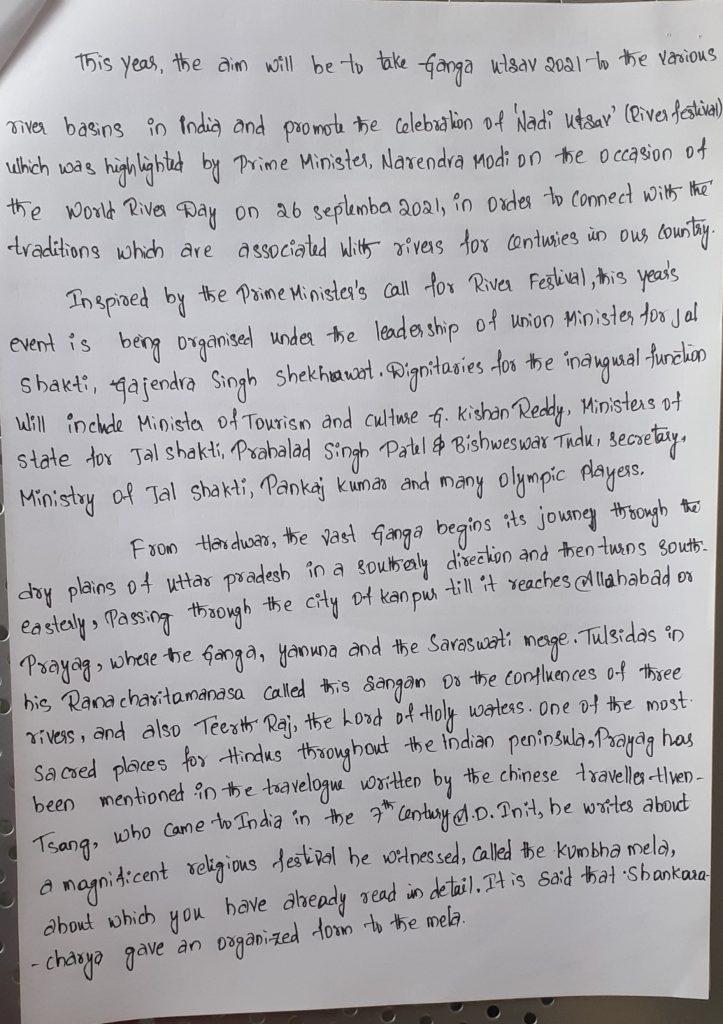 This year, the aim will be to take Ganga Utsav 2021 to the various
river basins in India and promote the Celebration of 'Nadi Utsav' (River festival)
which was highlighted by Prime Minister, Narendra Modi on the occasion of
the World River Day on 26 september 2021, in order to connect with the
traditions which are associated with rivers for centuries in our country.
Inspired by the Prime Minister's call for River Festival, this year's
event is being organised under the leadership of union Minister for Jal
Shakti, Gajendra Singh Shekhrawat. Dignitaries for the inaugural function
will include Minister of Tourism and culture G. Kishan Reddy, Ministers of
state for Jal shakti, Prabalad Singh Patel & Bishweswar Tudu, secretary,
Ministry of Jal Shakti, Pankaj Kumar and many Olympic players.
From Hardwar, the vast Ganga begins its journey through the
dry plains of uttar pradesh in a southerly direction and then turns south-
easterly, Passing through the city of kanpur till it reaches Allahabad or
Prayag, where the Ganga, yamuna and the Saraswati merge. Tulsidas in
his Ramacharitamanasa called this Sangam or the confluences of three
rivers, and also Teerth Raj, the Lord of Holy waters. One of the most
Sacred places for Hindus throughout the Indian peninsula, Prayag has
been mentioned in the travelogue written by the chinese traveller Hven-
Tsang, who came to India in the 7th Century A.D. In it, he writes about
a magnificent religious festival he witnessed, called the Kumbha mela,
about which you have already read in detail. It is said that Shankara-
-charya gave an organized form to the mela.